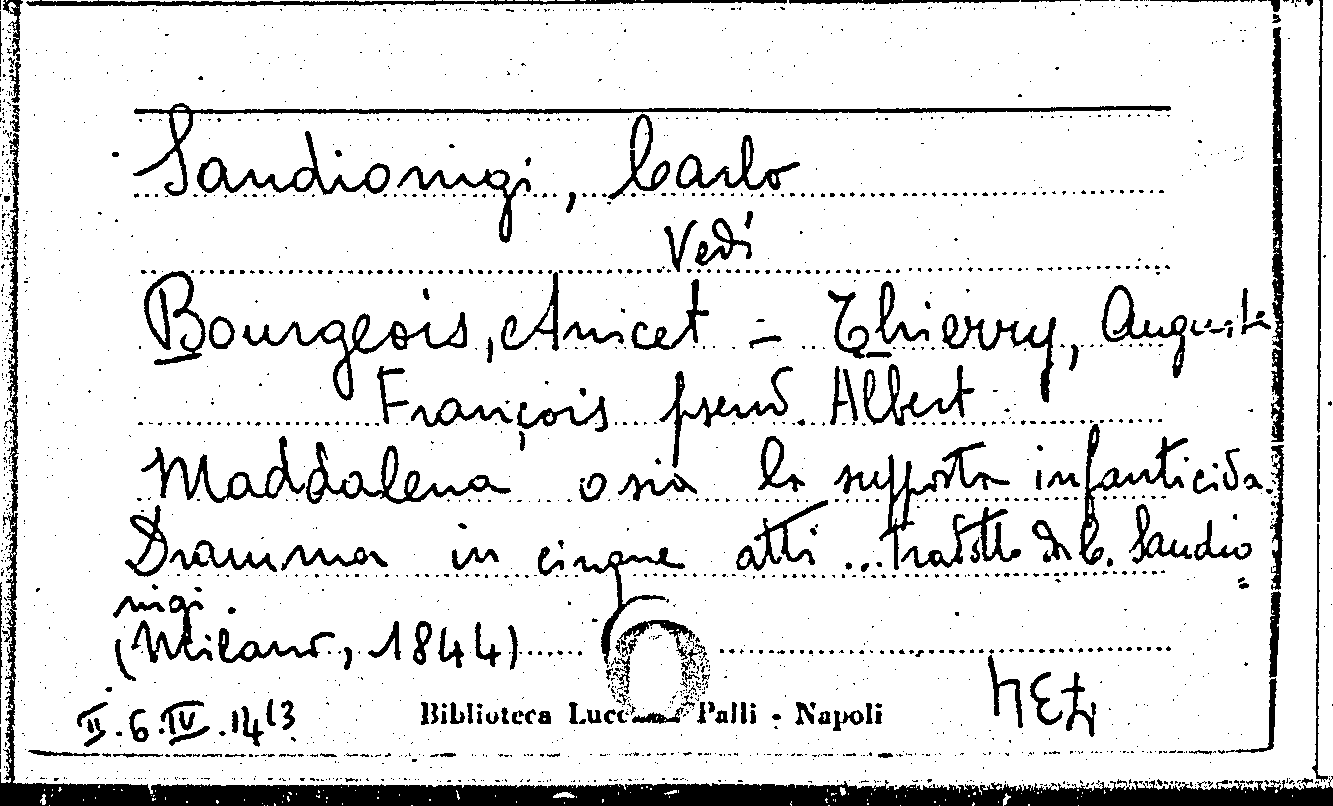 Sandionigi, Carlo
Vedi
Bourgeois, Anicet = Thierry, Auguste
François pseud. Albert
Maddalena osia la supposta infanticida.
Dramma in cinque atti ... tradotto da C. Sandio=
nigi.
(Milano, 1844)
II.6.IV.14(3
Biblioteca Lucchesi Palli - Napoli